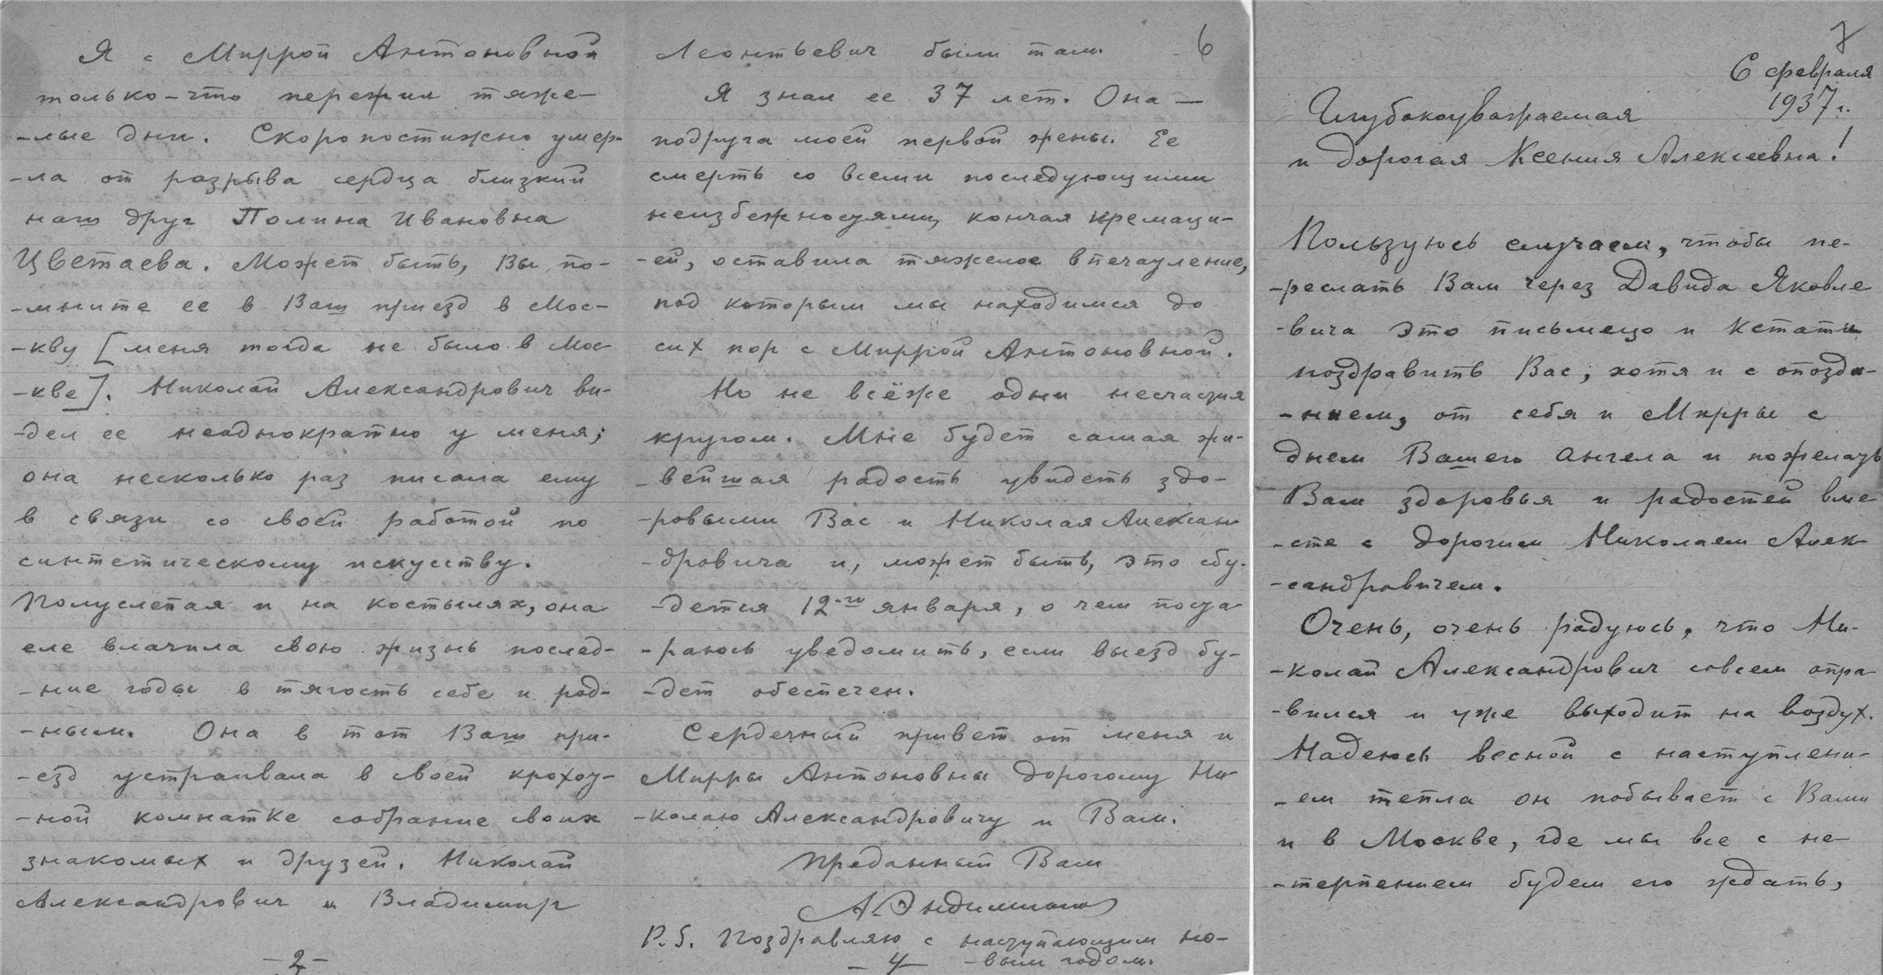 Я с Миррой Антоновной
только-что пережил тяже-
-лые дни. Скоропостижно умер-
-ла от разрыва сердца близкий
наш друг Полина Ивановна
Цветаева. Может быть, Вы по-
-мните ее в Ваш приезд в Мос-
-кву [меня тогда не было в Мос-
-кве]. Николай Александрович ви-
-дел ее неоднократно у меня;
она несколько раз писала ему
в связи со своей работой по
синтетическому искусству.
Полуслепая и на костылях, она
еле влачила свою жизнь послед-
-ние годы в тягость себе и род-
-ным. Она в тот Ваш при-
-езд устраивала в своей крохот-
-ной комнатке собрание своих
знакомых и друзей. Николай
Александрович и Владимир
-2-
6
Леонтьевич были там.
Я знал ее 37 лет. Она —
подруга моей первой жены. Ее
смерть со всеми последующими
неизбежностями, кончая кремаци-
-ей, оставила тяжелое впечатление,
под которым мы находимся до
сих пор с Миррой Антоновной.
Но не всёже одни несчастия
кругом. Мне будет самая жи-
-вейшая радость увидеть здо-
-ровыми Вас и Николая Алексан-
-дровича и, может быть, это сбу-
-дется 12-го января, о чем поста-
-раюсь уведомить, если выезд бу-
-дет обеспечен.
Сердечный привет от меня и
Мирры Антоновны дорогому Ни-
-колаю Александровичу и Вам.
Преданный Вам
P.S. Поздравляю с наступающим но-
-вым годом.
-4-
7
6 февраля
1937 г.
Глубокоуважаемая
и дорогая Ксения Алексеевна!
Пользуюсь случаем, чтобы пе-
-реслать Вам через Давида Яковле
-вича это письмецо и кстати
поздравить Вас, хотя и с опозда-
-нием, от себя и Мирры с
днем Вашего ангела и пожелать
Вам здоровья и радостей вме-
-сте с дорогим Николаем Алек-
-сандровичем.
Очень, очень радуюсь, что Ни-
-колай Александрович совсем опра-
-вился и уже выходит на воздух.
Надеюсь весной с наступлени-
-ем тепла он побывает с Вами
и в Москве, где мы все с не-
-терпением будем его ждать,